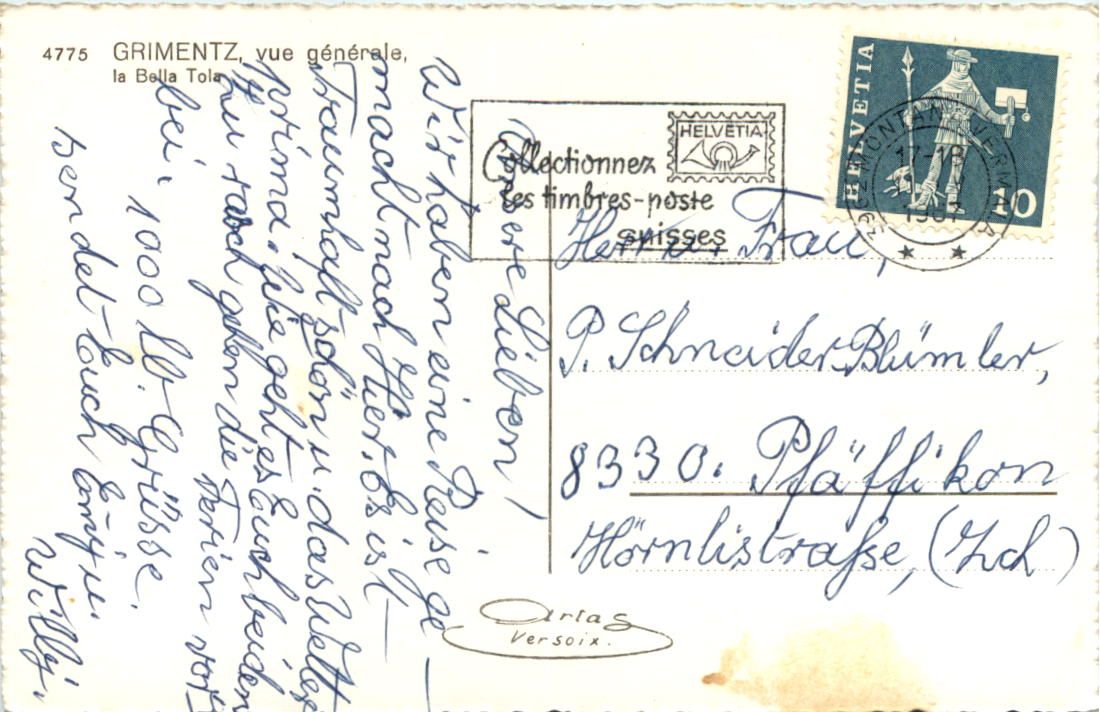 4775 GRIMENTZ, vue générale,
la Bella Tola
HELVETIA
Collectionnez
les timbres-poste
suisses
HELVETIA
10
3962 MONTANA-VERMALA
17-18
Unsere Lieben!
Wir haben eine Reise ge-
macht nach Hier. Es ist
Traumhaft schön u. das Wetter
prima. Wie geht es Euch beiden
zu rasch gehen die Ferien vor-
bei. 1000 lb. Grüsse.
sendet Euch Emmy u.
Willy.
Herr u. Frau,
P. Schneider-Blümler,
8330. Pfäffikon
Hörnlistraße, (Zch)
Artas
Versoix.